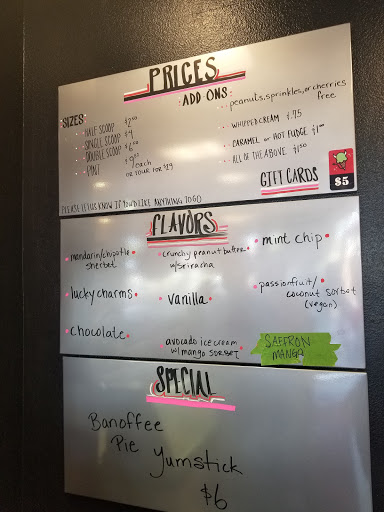 PRICES
SIZES:
HALF SCOOP $2.00
SINGLE SCOOP $4
DOUBLE SCOOP $6.00
PINT $9.00 each
OR FOUR FOR $29
ADD ONS:
peanuts, sprinkles, or cherries free
WHIPPED CREAM $.75
CARAMEL OR HOT FUDGE $1.00
ALL OF THE ABOVE $1.50
GIFT CARDS
$5
PLEASE LET US KNOW IF YOU'D LIKE ANYTHING TO GO
FLAVORS
mandarin/chipotle
sherbet
crunchy peanut butter
w/sriracha
mint chip
lucky charms
vanilla
passionfruit/
coconut sorbet
(vegan)
chocolate
avocado ice cream
w/ mango sorbet
SAFFRON
MANGO
SPECIAL
Banoffee
Pie Yumstick
$6